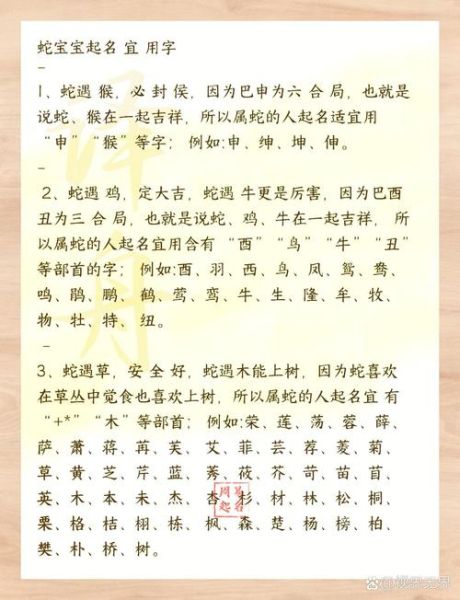 蛇宝宝起名 宜 用字
–
1、蛇遇 猴，必 封 侯，因为巳申为六 合 局，也就是
说蛇、猴在一起吉祥，所以属蛇的人起名适宜用
“申”“猴”等字； 例如:申、绅、坤、伸。
–
2、蛇遇 鸡，定大吉，蛇遇 牛更是厉害，因为巳酉
丑为三 合 局，也就是说蛇、鸡、牛在一起吉祥， 所
以属蛇的人起名宜用含有 “酉” “鸟” “牛” “丑”
等部首的字； 例如:酉、羽、西、鸟、凤、鸳、鸯、
鸣、鹃、鹏、 鹤、莺、鸾、牛、生、隆、牟、牧、
物、牡、特、 纽。
–
3、蛇遇草，安 全 好，蛇遇木能上树，因为蛇喜欢
在草丛中觉食也喜欢上树，所以属蛇的人起名宜 有
“+*” “木”等部首； 例如:荣、莲、荡、蓉、薛、
萨、萧、蒋、苒、芙、艾、菲、芸、荐、菱、菊、
草、黄、芝、芹、蓝、 莠、莜、芥、苛、苗、首、
英、木、本、未、杰、杏、杉、材、林、松、桐、
栗、格、桔、栩、栋、 枫、森、楚、杨、榜、柏、
樊、朴、桥、树。
译舟